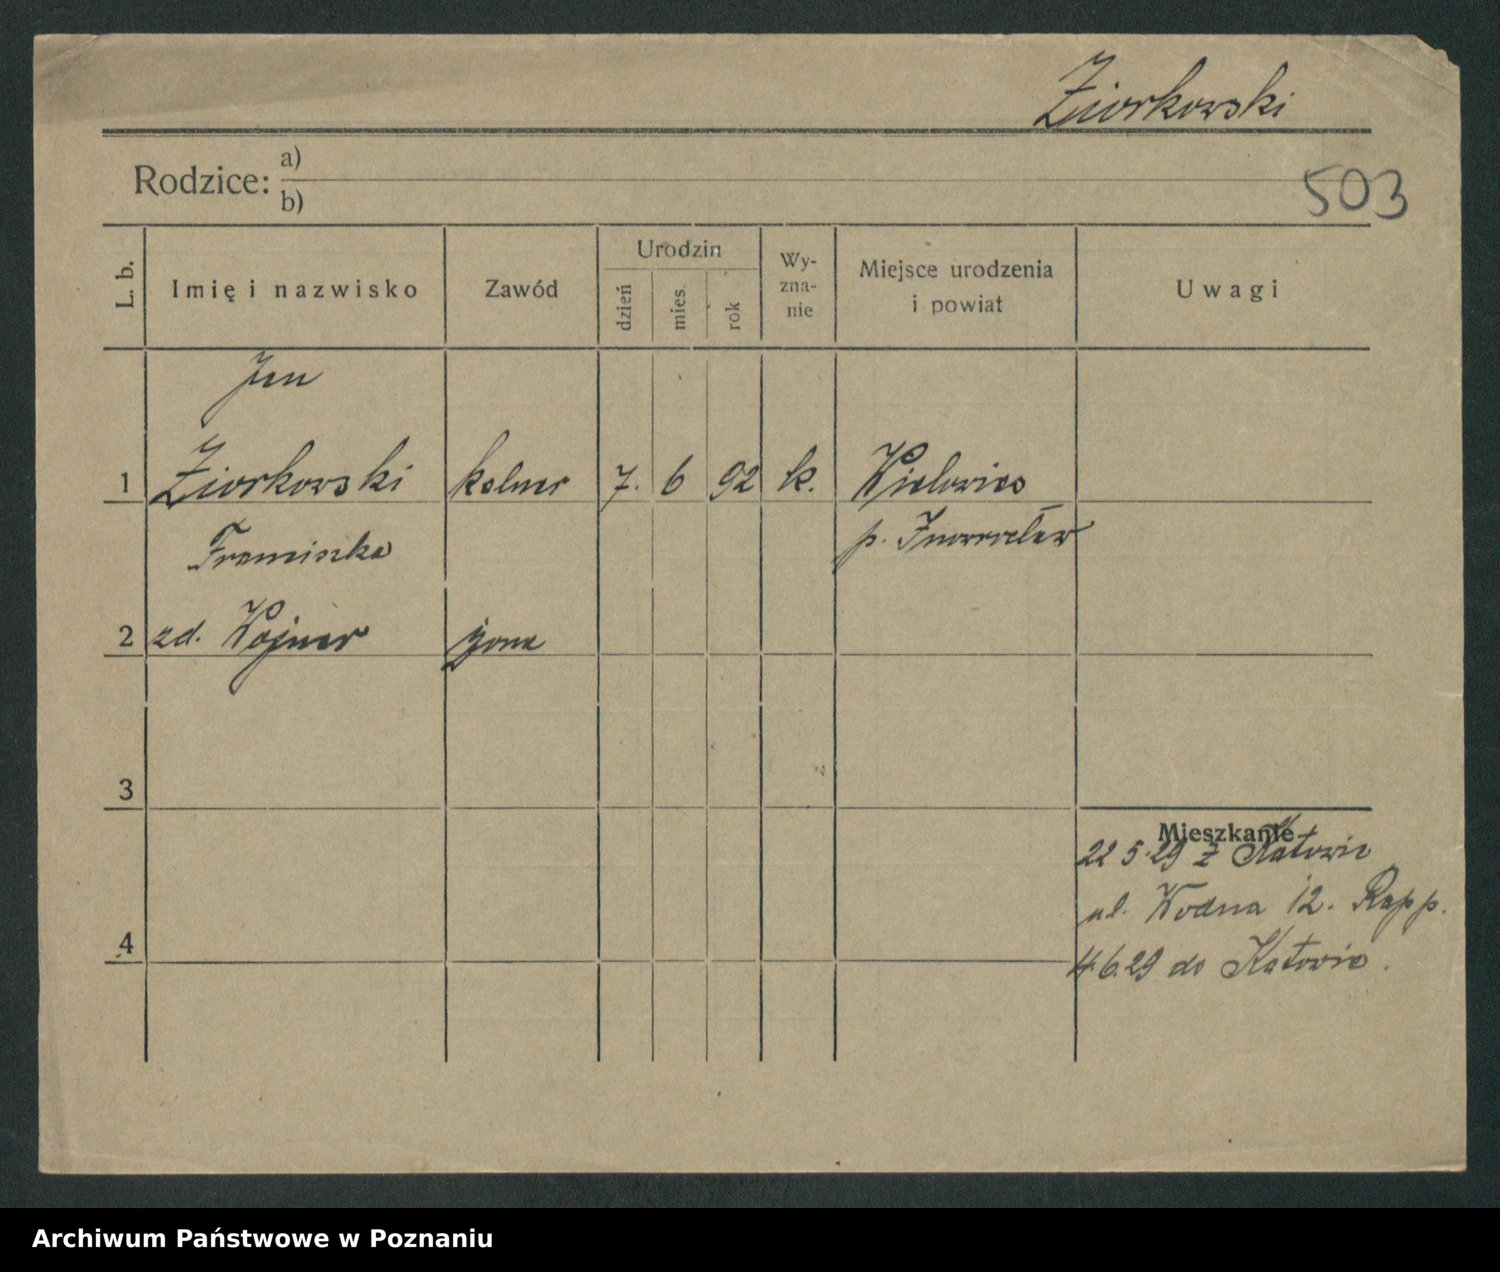 Ziorkowski
Rodzice: a)
b)
503
L. b.
Imię i nazwisko
Zawód
Urodzin
dzień
mies.
rok
Wy-
zna-
nie
Miejsce urodzenia
i powiat
Uwagi
Jan
1 Ziorkowski kelner 7. 6 92 k.
Franciszka p. Inowrocław
2 zd. Wojner żona
3
Mieszkanie
22 5.29 z Katowic
ul. Wodna 12. Rapp.
4
4.6.29 do Katowic.
Archiwum Państwowe w Poznaniu